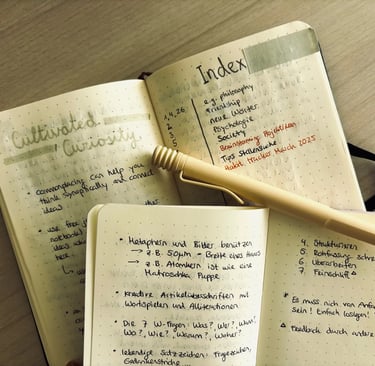 Cultivated
Curiosity
commonplacing can help you
think synaptically and connect
ideas
Index
1, 4, 26
e.g. philosophy
friendship
neue Wörter
Psychologie
Society
Brainstorming Projektideen
Tips Stellensuche
Habit Tracker March 2025
Metaphern und Bilder benützen
→ z.B. 50µm - Breite eines Haars
→ z.B. Atomkern ist wie eine
Matroschka Puppe
Kreative Artikelüberschriften mit
Wortspielen und Alliterationen
Die 7 W-Fragen: Was?, Wer?, Wann?,
Wo?, Wie?, Warum?, Woher?
lebendige Satzzeichen: Fragezeichen,
Gedankenstriche...
4. Strukturieren
5. Rohfassung
6. Überarbeiten
7. Feinschliff
Es muss nicht von
sein! Einfach loslegen!
Feedback durch andere